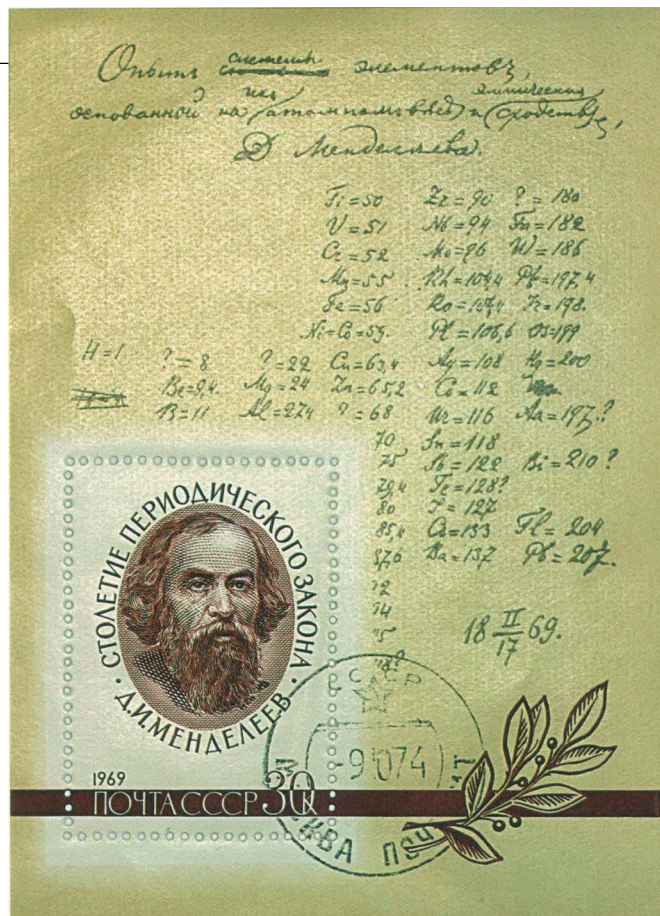 Опытъ системы элементовъ,
основанной на ихъ атомномъ вѣсѣ и химическомъ сходствѣ,
Д. Менделѣева.
Ti=50 Zr=90 ?=180
V=51 Nb=94 Ta=182
Cr=52 Mo=96 W=186
Mn=55 Rh=104,4 Pt=197,4
Fe=56 Ro=104,4 Ir=198.
Ni=Co=59. Pl=106,6 Os=199
H=1 ?=8 ?=22 Cu=63,4 Ag=108 Hg=200
Be=9,4. Mg=24 Zn=65,2 Cd=112
B=11 Al=27,4 ?=68 Ur=116 Au=197?
70 Sn=118
75 Sb=122 Bi=210?
79,4 Te=128?
80 J=127
85,4 Cs=133 Tl=204
87,6 Ba=137 Pb=207.
92
94
95
118?
18 II/17 69.
СТОЛЕТИЕ ПЕРИОДИЧЕСКОГО ЗАКОНА
· Д.И.МЕНДЕЛЕЕВ ·
1969
ПОЧТА СССР 30К
СССР
-9 10 74
МОСКВА ПОЧТАМТ